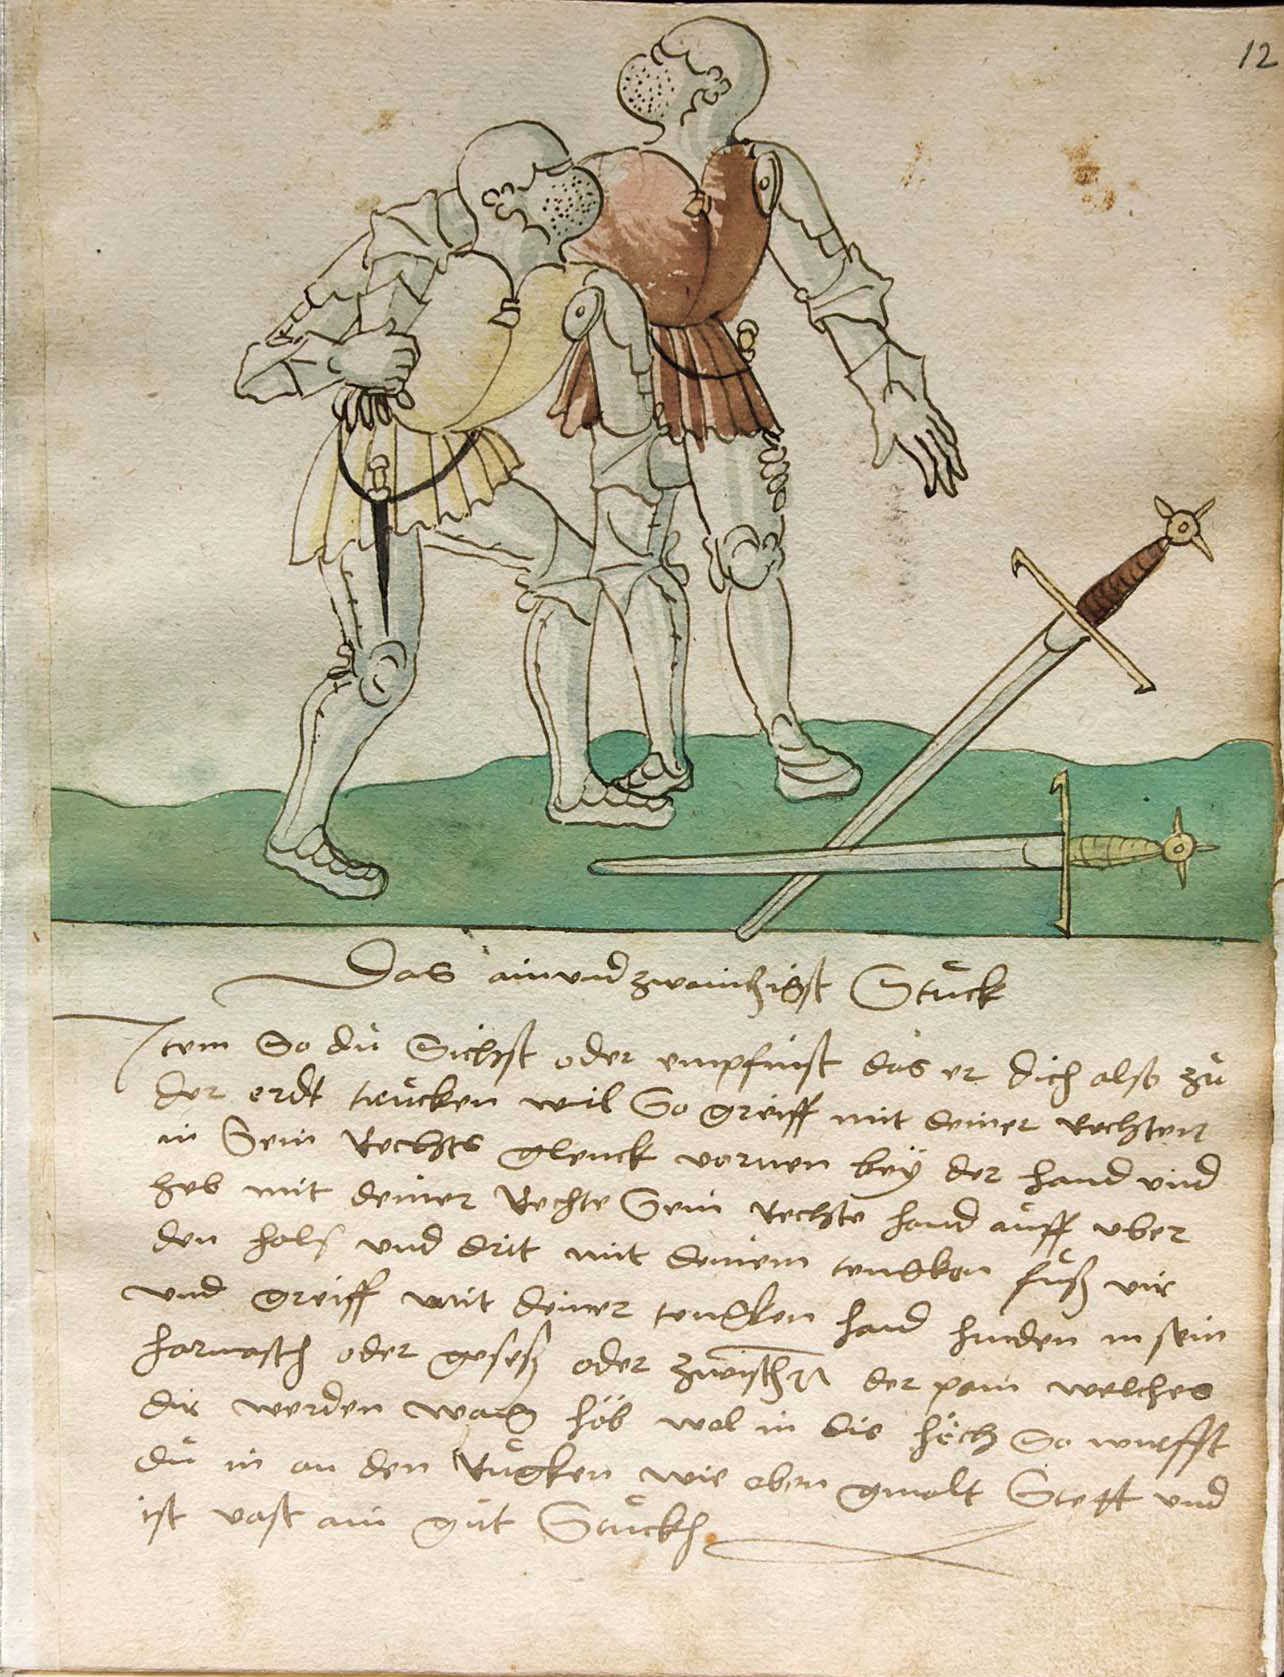 12
Das ainundzwainzigist Stuck
Item So dü Sichst oder empfinst das er dich also zü
der erdt trücken wil So greiff mit deiner Rechten
in Sein Rechts glenck vornen beÿ der hand und
heb mit deiner Rechte Sein Rechte hand auff vber
den hals und drit mit deinem tengken füß vir
vnd greiff mit deiner tengken hand hinden in sein
harnasch oder geseß oder zwischen der pain welches
dir werden mag höb wol in die höch So wirffst
dü in an den Rügken wie oben gmalt Stett und
ist vast ain güt Stückh